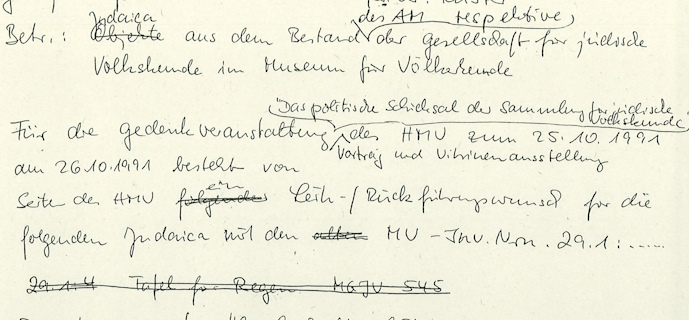 Judaica
des AM respektive
Betr.: Objekte aus dem Bestand der Gesellschaft für jüdische
Volkskunde im Museum für Völkerkunde
"Das politische Schicksal der Sammlung für jüdische
Volkskunde"
Für die Gedenkveranstaltung des HMV zum 25.10.1991
Vortrag und Vitrinenausstellung
am 26.10.1991 besteht von
ein
Seite des HMV folgender Leih-/Rückführungswunsch für die
folgenden Judaica mit den alten MV-Inv.Nrn. 29.1:.....
29.1.4 Tafel für Regen MGJV 545